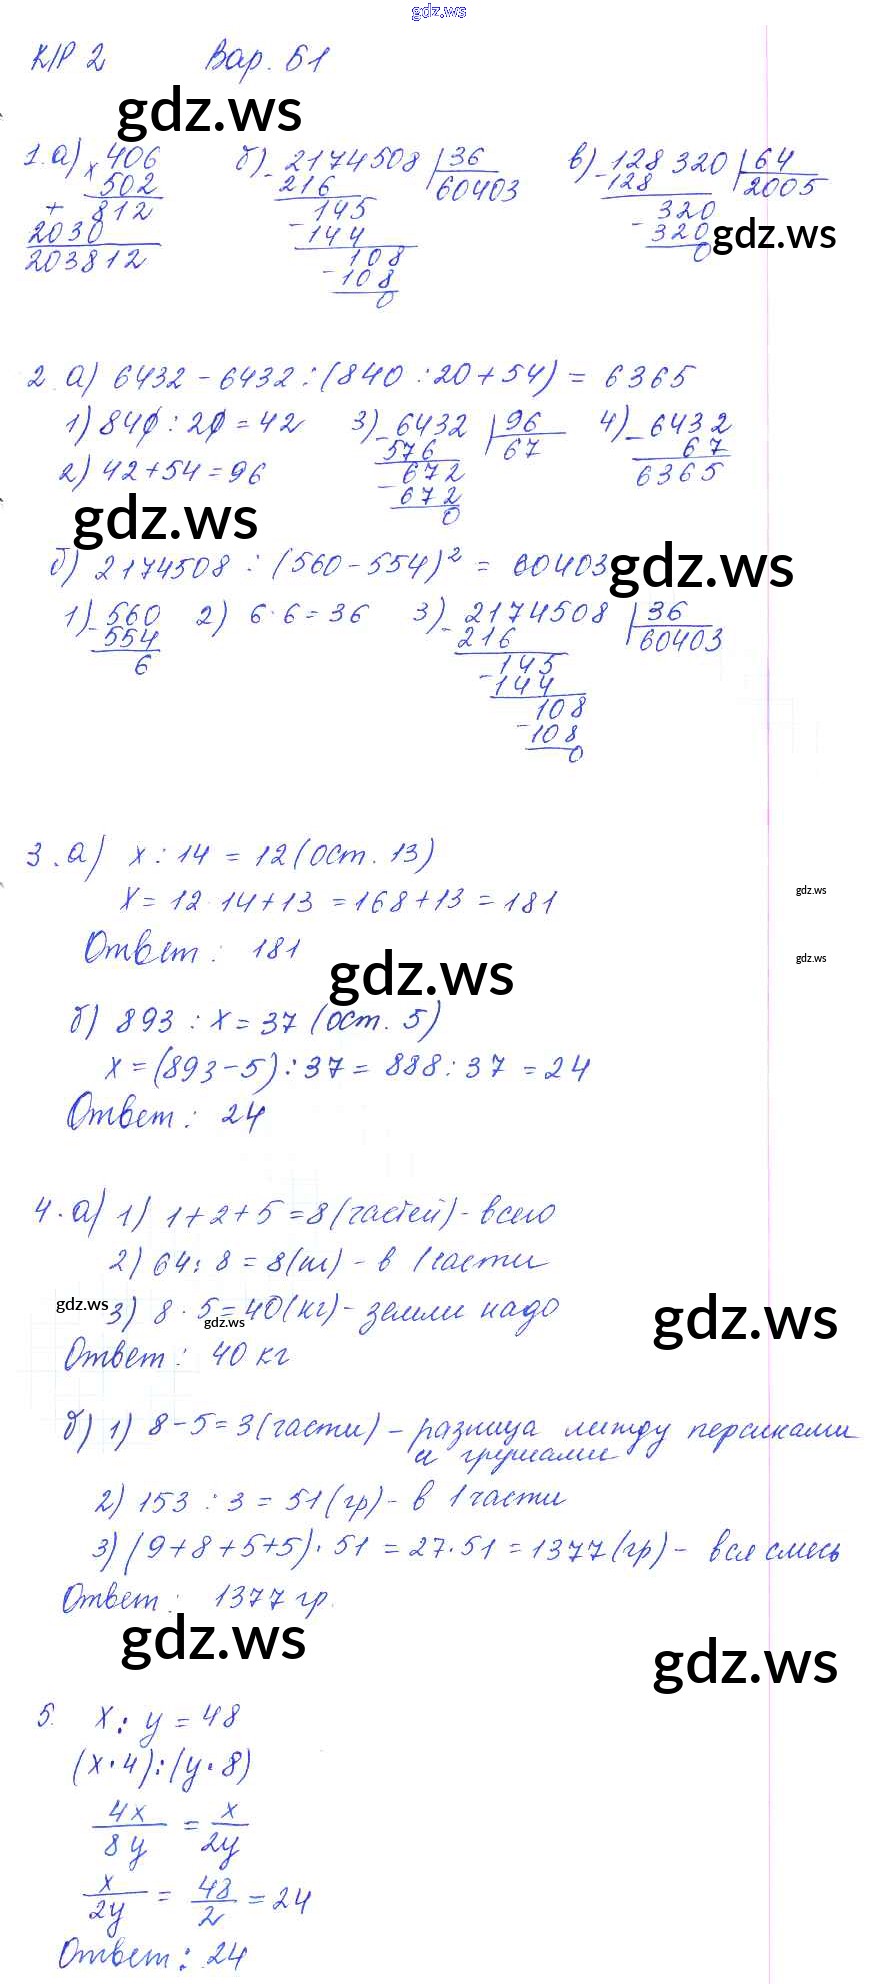 gdz.ws
К/Р 2 Вар. Б1
gdz.ws
1. а) × 406 б) - 2174508 | 36 в) - 128 320 | 64
502 216 60403 128 2005
+ 812 145 320
2030 - 144 - 320 gdz.ws
203812 108 0
- 108
0
2 а) 6432 - 6432 : (840 : 20 + 54) = 6365
1) 840 : 20 = 42 3) - 6432 | 96 4) - 6432
576 67 67
2) 42 + 54 = 96 672 6365
- 672
0
gdz.ws
б) 2174508 : (560 - 554)² = 60403 gdz.ws
1) - 560 2) 6 · 6 = 36 3) - 2174508 | 36
554 216 60403
6 145
- 144
108
- 108
0
3. а) x : 14 = 12 (ост. 13)
x = 12 · 14 + 13 = 168 + 13 = 181
gdz.ws
Ответ : 181
gdz.ws
gdz.ws
б) 893 : x = 37 (ост. 5)
x = (893 - 5) : 37 = 888 : 37 = 24
Ответ : 24
4. а) 1) 1 + 2 + 5 = 8 (частей) - всего
2) 64 : 8 = 8 (кг) - в 1 части
gdz.ws 3) 8 · 5 = 40 (кг) - земли надо gdz.ws
gdz.ws
Ответ : 40 кг
б) 1) 8 - 5 = 3 (части) - разница между персиками
и грушами
2) 153 : 3 = 51 (гр) - в 1 части
3) (9 + 8 + 5 + 5) · 51 = 27 · 51 = 1377 (гр) - вся смесь
Ответ : 1377 гр.
gdz.ws gdz.ws
5. x : y = 48
(x · 4) : (y · 8)
4x/8y = x/2y
x/2y = 48/2 = 24
Ответ : 24